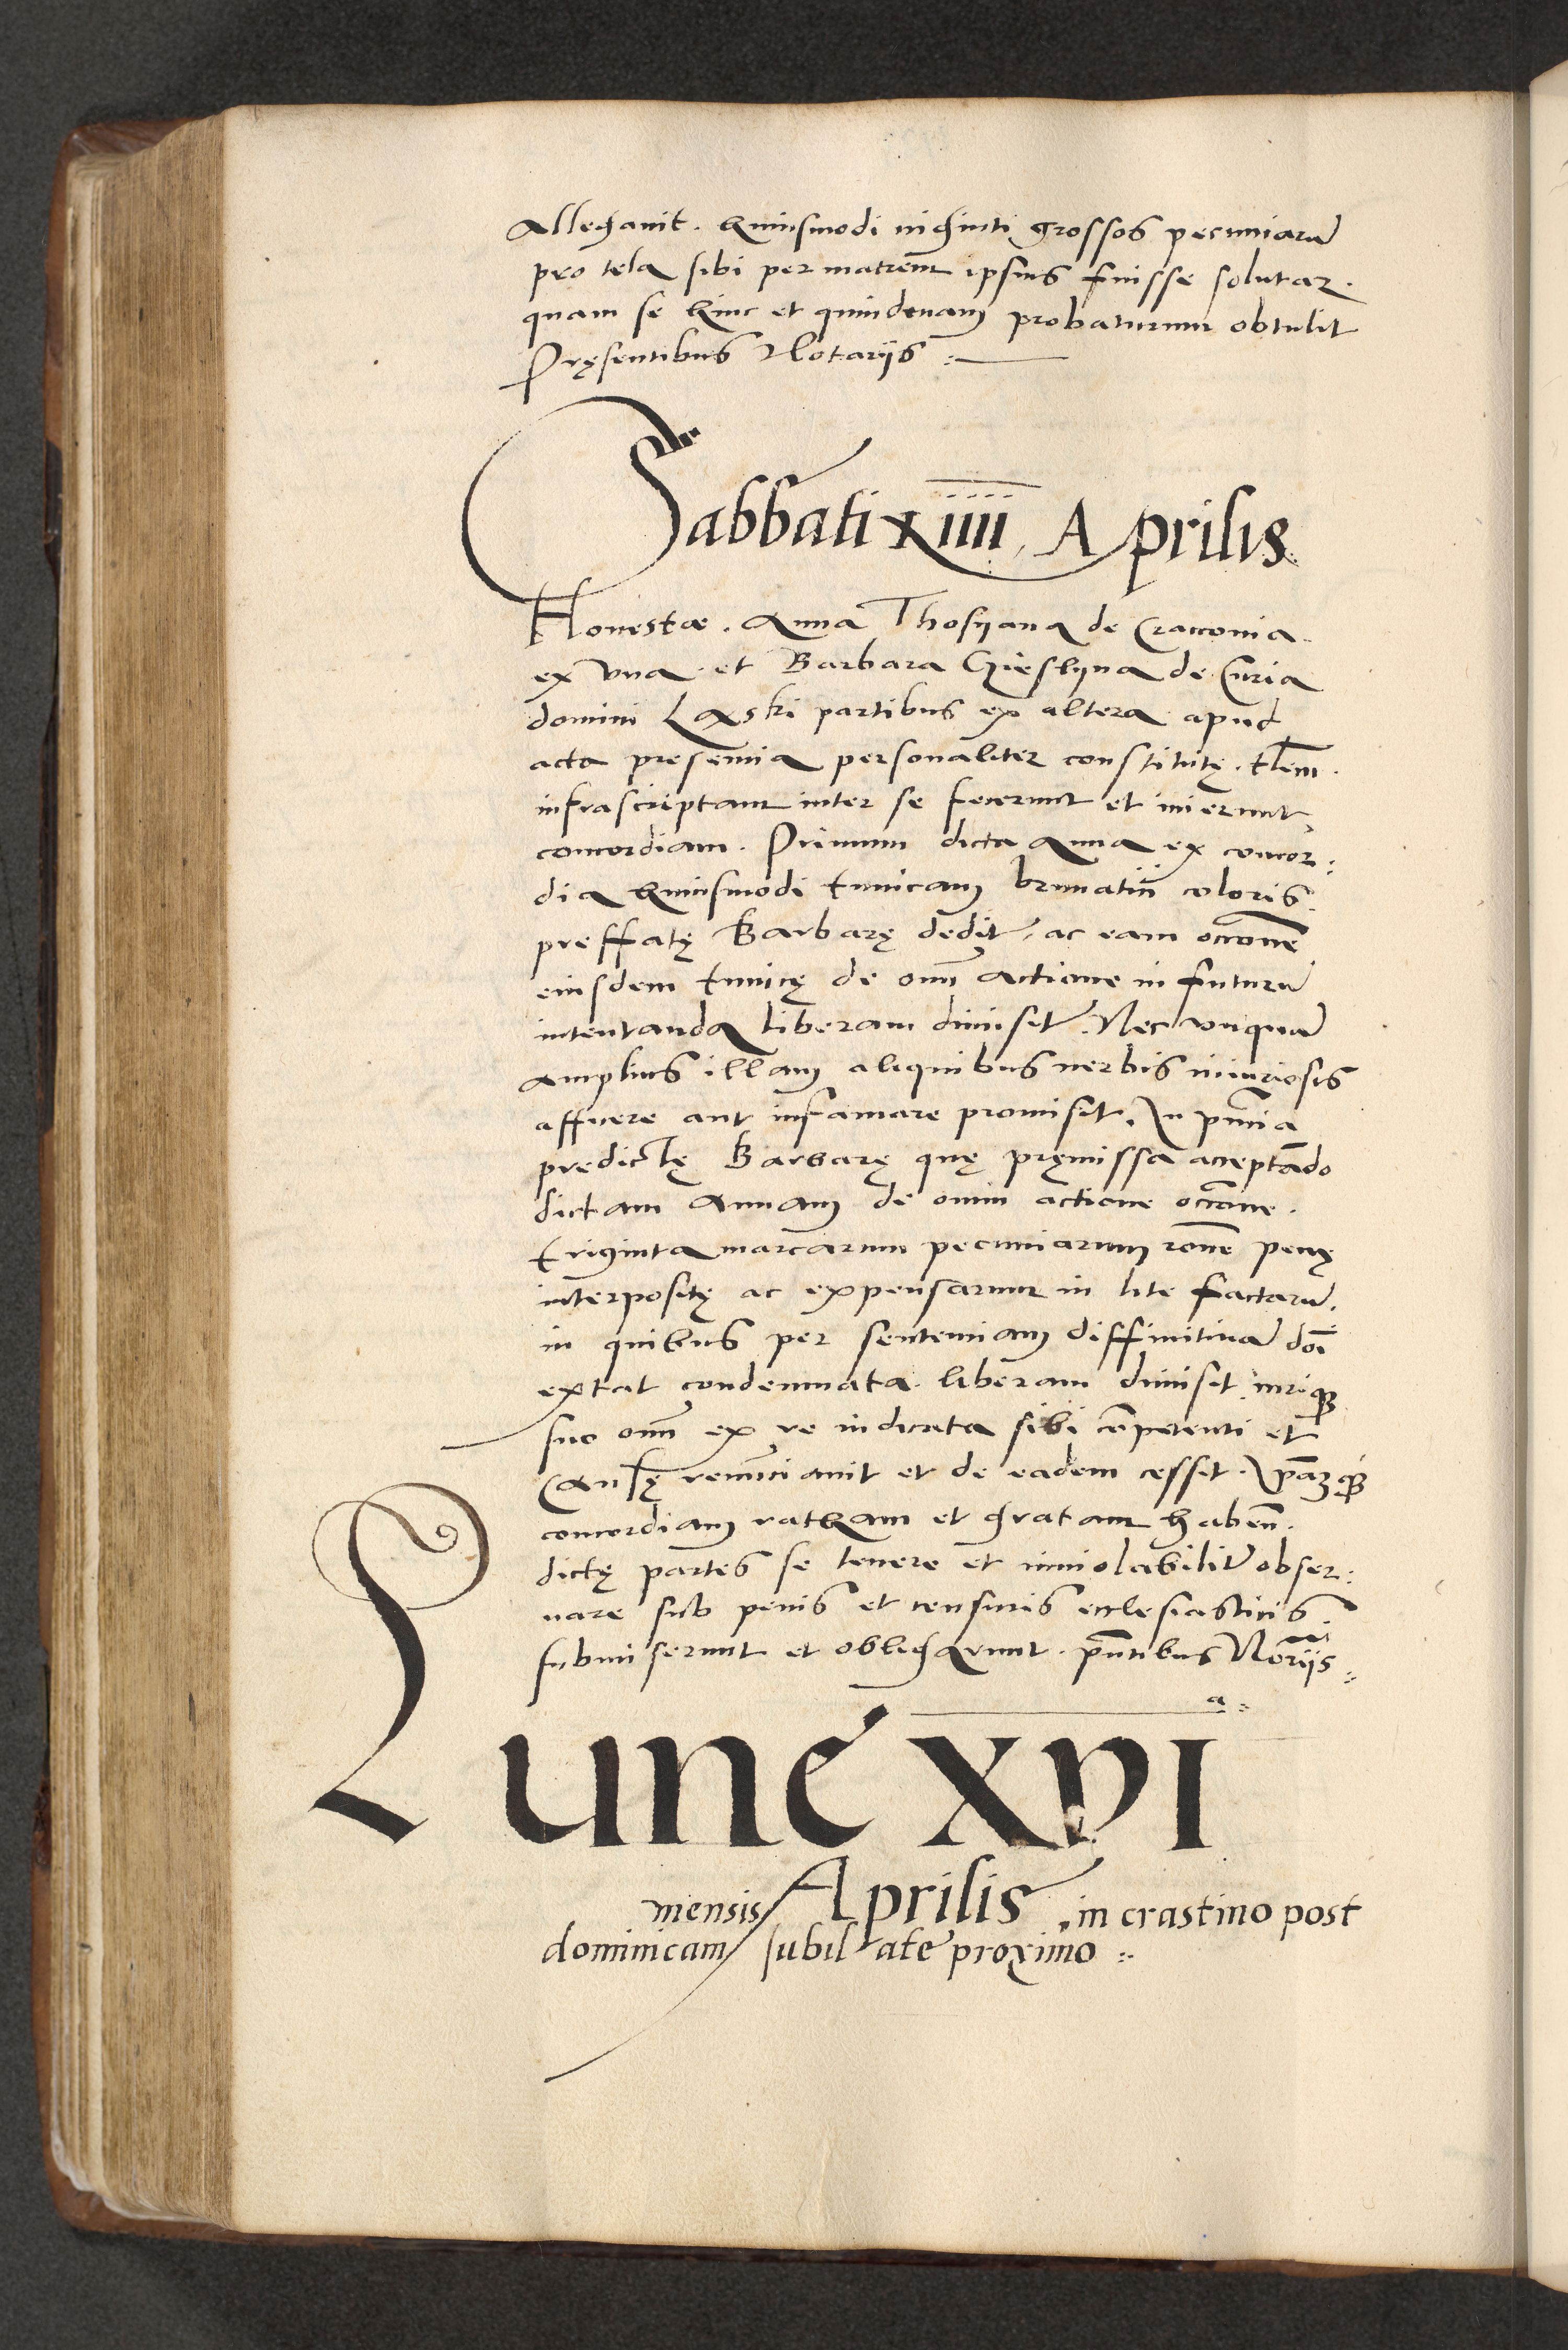 Allegavit. huiusmodi viginti grossos pecuniarū
pro tela sibi per matrem ipsius fuisse solutaʒ.
quam se hinc et quindenam probaturum obtulit
Pręsentibus Notarijs
Sabbati xiiii Aprilis
Honestæ. Anna Thosijana de Cracovia
ex vna et Barbara Czieslijna de Curia
domini Laski partibus ex altera apud
acta presentia personaliter constitutę. tłem
infrascriptam inter se fecerunt et inierunt
concordiam. Primum dicta Anna ex concor:
dia huiusmodi tunicam brunatiñ coloris
preffatę Barbarę dedit, ac eam occone
eiusdem tunicę de omī actione in futurū
intentanda liberam dimisit. Nec vnquā
amplius illam aliquibus verbis iniuriosis
afficere aut infamare promisit. In pñtia
predictę Barbarę quę pręmissa acceptādo
dictam Annam de omni actione occone.
triginta marcarum pecuniarum rone penę
interpositę ac expensarum in lite factarū.
in quibus per sententiam diffinitivā doī
extat condemnata liberam dimisit iuriqʒ
suo omī ex re iudicata sibi cōpetenti et
Causę renunciavit et de eadem cessit.
concordiam ratham et gratam habeñ.
dictę partes se tenere et inviolabilitr obser:
vare sub penis et censuris ecclesiasticis
submiserunt et obligarunt. pñtibus Norijs
Lune XVI a
mensis Aprilis in crastino post
dominicam Iubilate proximo